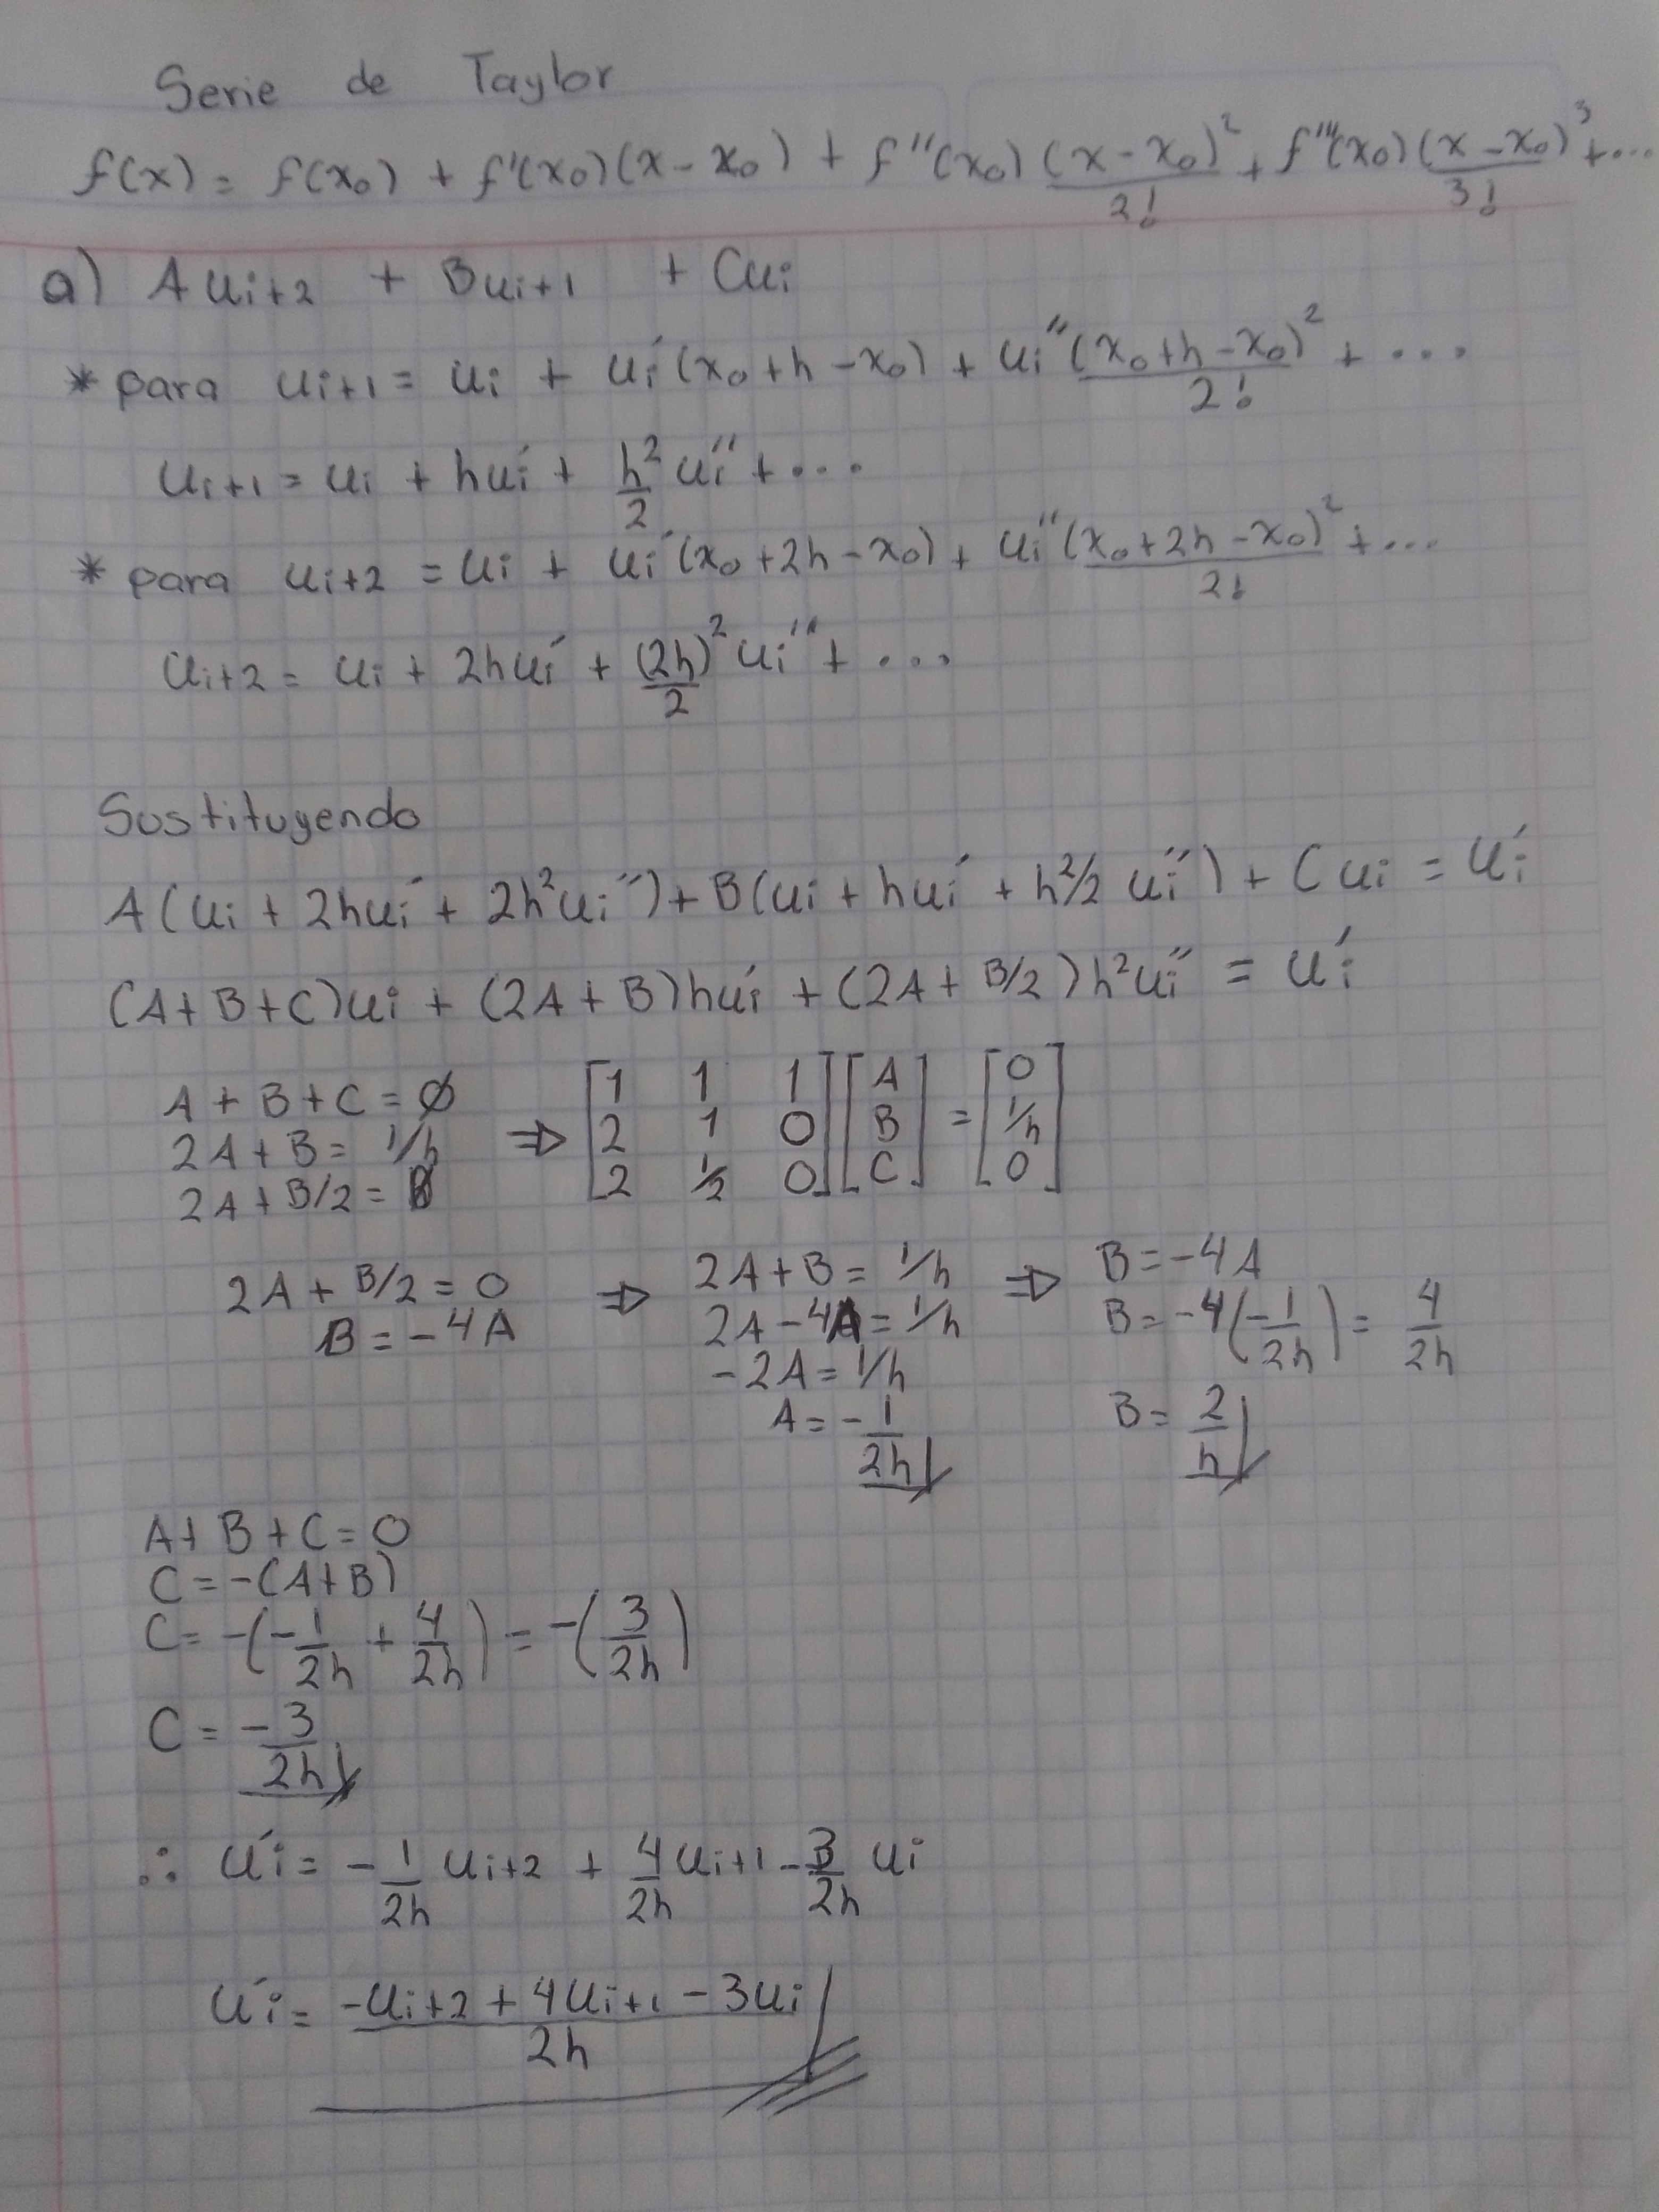 Serie de Taylor
f(x) = f(x₀) + f'(x₀)(x - x₀) + f''(x₀) (x - x₀)²/2! + f'''(x₀) (x - x₀)³/3! + ...
a) A uᵢ₊₂ + B uᵢ₊₁ + C uᵢ
* para uᵢ₊₁ = uᵢ + uᵢ'(x₀ + h - x₀) + uᵢ'' (x₀ + h - x₀)²/2! + ...
uᵢ₊₁ = uᵢ + huᵢ' + h²/2 uᵢ'' + ...
* para uᵢ₊₂ = uᵢ + uᵢ'(x₀ + 2h - x₀) + uᵢ'' (x₀ + 2h - x₀)²/2! + ...
uᵢ₊₂ = uᵢ + 2huᵢ' + (2h)²/2 uᵢ'' + ...
Sustituyendo
A(uᵢ + 2huᵢ' + 2h²uᵢ'') + B(uᵢ + huᵢ' + h²/2 uᵢ'') + Cuᵢ = uᵢ'
(A + B + C)uᵢ + (2A + B)huᵢ' + (2A + B/2)h²uᵢ'' = uᵢ'
A + B + C = 0
2A + B = 1/h
2A + B/2 = 0
⇒ [1 1 1] [A] = [0]
[2 1 0] [B] [1/h]
[2 1/2 0] [C] [0]
2A + B/2 = 0
B = -4A
⇒ 2A + B = 1/h
2A - 4A = 1/h
-2A = 1/h
A = -1/2h
⇒ B = -4A
B = -4(-1/2h) = 4/2h
B = 2/h
A + B + C = 0
C = -(A + B)
C = -(-1/2h + 4/2h) = -(3/2h)
C = -3/2h
∴ uᵢ' = -1/2h uᵢ₊₂ + 4/2h uᵢ₊₁ - 3/2h uᵢ
uᵢ' = -uᵢ₊₂ + 4uᵢ₊₁ - 3uᵢ / 2h